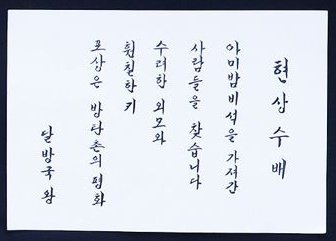 현상수배
아미밤비석을 가져간
사람들을 찾습니다
수려한 외모와
훤칠한 키
포상은 방탄촌의 평화
달방국 왕